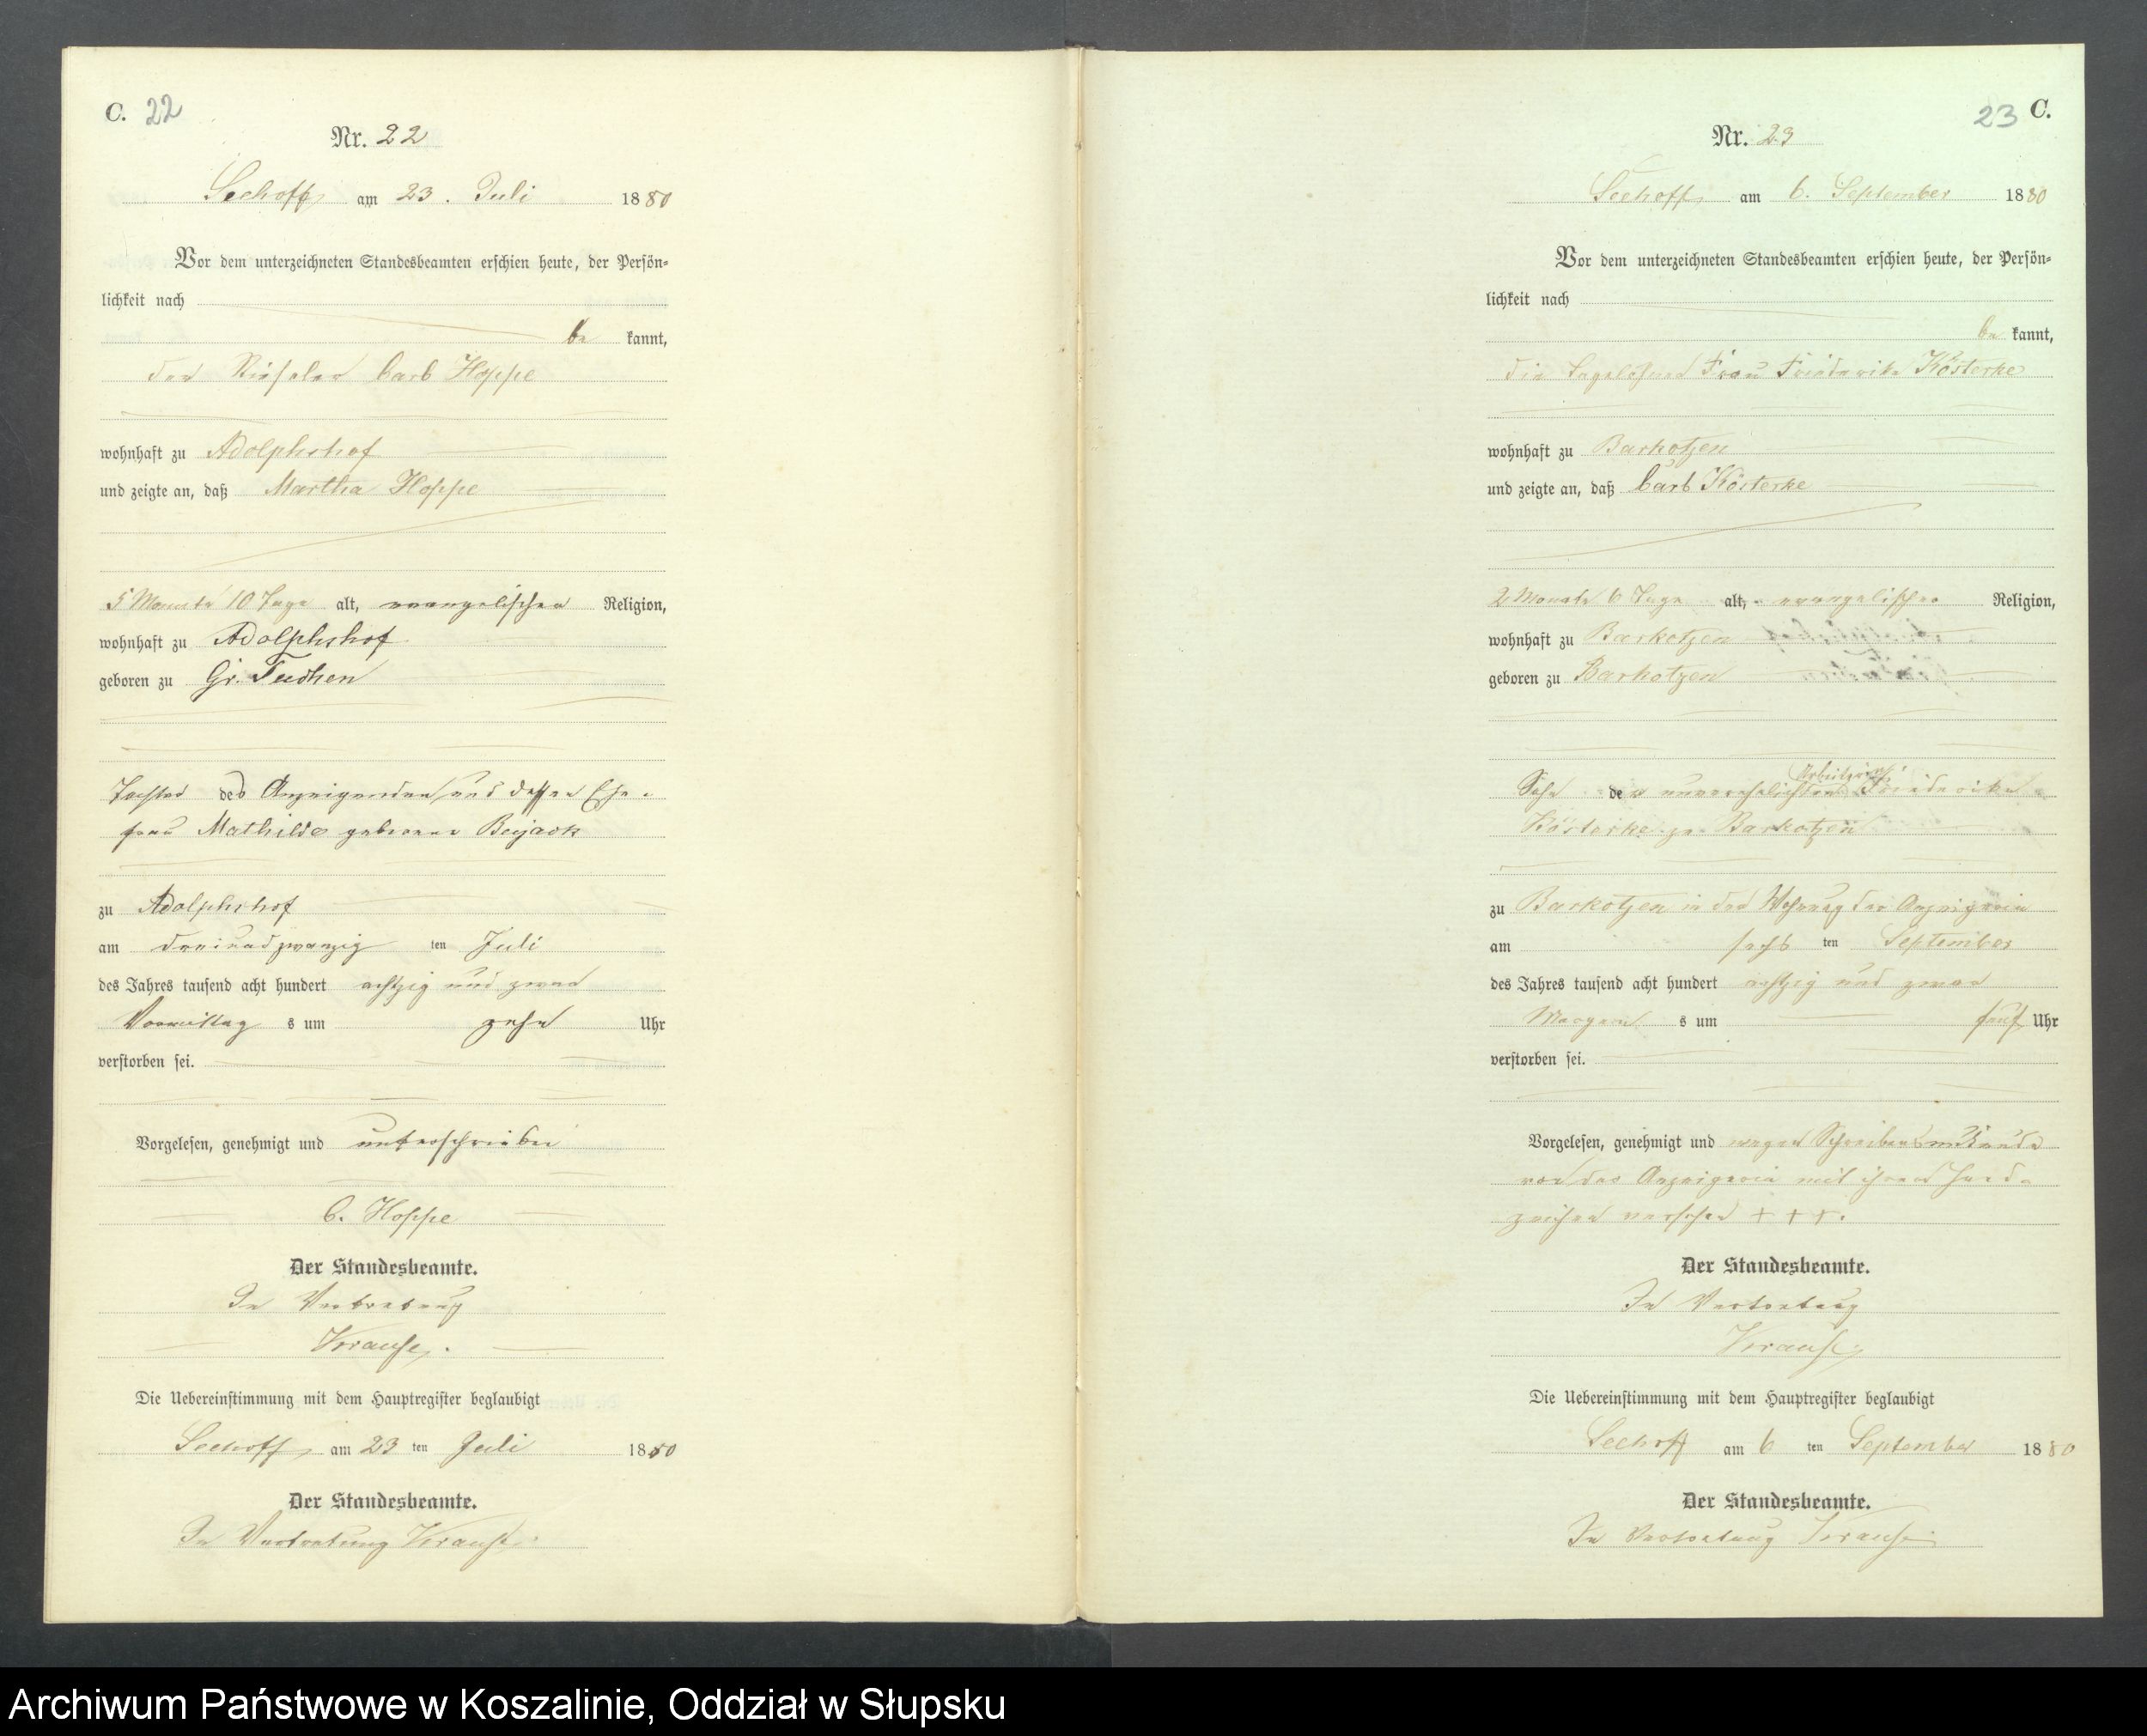 C. 22
Nr. 22
Seehoff am 23. Juli 1880
Vor dem unterzeichneten Standesbeamten erschien heute, der Persön-
lichkeit nach
be kannt,
der Carl Hoppe
wohnhaft zu Adolphshof
und zeigte an, daß Martha Hoppe
5 Monate 10 Tage alt, evangelischer Religion,
wohnhaft zu Adolphshof
geboren zu Gr. Tuchen
Tochter des Anzeigenden und dessen Ehe-
frau Mathilde geborene
zu Adolphshof
am dreiundzwanzig ten Juli
des Jahres tausend acht hundert achtzig und zwar
Vormittag s um zehn Uhr
verstorben sei.
Vorgelesen, genehmigt und unterschrieben
C. Hoppe
Der Standesbeamte.
In Vertretung
Krause.
Die Uebereinstimmung mit dem Hauptregister beglaubigt
Seehoff, am 23 ten Juli 1880
Der Standesbeamte.
In Vertretung Krause.
23 C.
Nr. 23
Seehoff, am 6. September 1880
Vor dem unterzeichneten Standesbeamten erschien heute, der Persön-
lichkeit nach
be kannt,
die Tagelöhner Frau Friederike Kösterke
wohnhaft zu Barkotzen
und zeigte an, daß Carl Kösterke
2 Monate 6 Tage alt, evangelischer Religion,
wohnhaft zu Barkotzen
geboren zu Barkotzen
Arbeiterin
Sohn der unverehelichten Friederike
Kösterke zu Barkotzen
zu Barkotzen in der Wohnung der Anzeigerin
am sechs ten September
des Jahres tausend acht hundert achtzig und zwar
Morgen s um fünf Uhr
verstorben sei.
Vorgelesen, genehmigt und wegen Schreibensunkunde
von der Anzeigerin mit ihrem Hand-
zeichen versehen + + +.
Der Standesbeamte.
In Vertretung
Krause
Die Uebereinstimmung mit dem Hauptregister beglaubigt
Seehoff am 6 ten September 1880
Der Standesbeamte.
In Vertretung Krause
Archiwum Państwowe w Koszalinie, Oddział w Słupsku